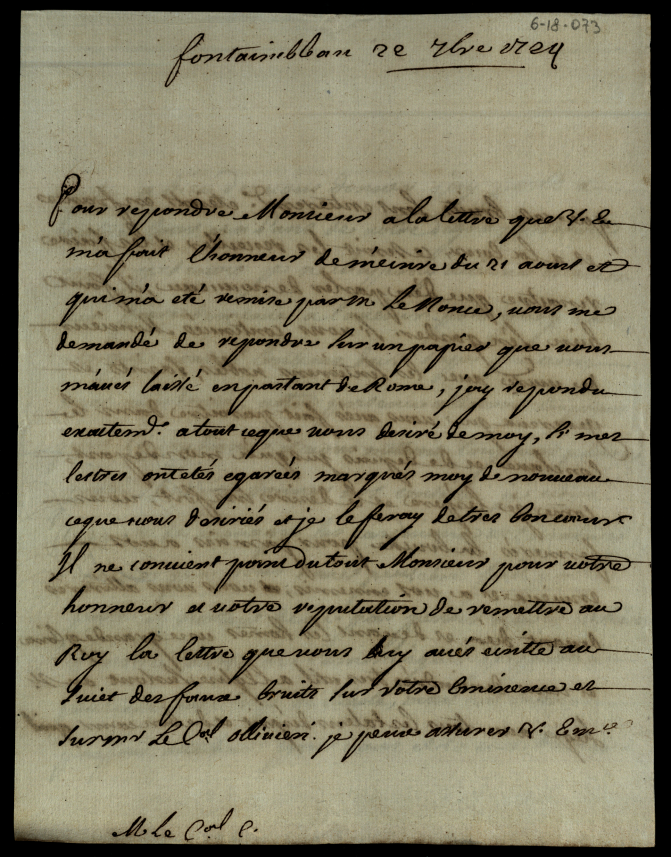 6-18-073
fontainebleau 22 7bre 1724
Pour repondre Monsieur a la lettre que V. E.
m'a fait l'honneur de m'ecrire du 21 aoust et
qui m'a eté remise par m le Nonce, vous me
demandé de repondre sur un papier que vous
m'avés laissé en partant de Rome, j'ay repondu
exactemt. a tout ce que vous desiré de moy, si mes
lestres ont etés egareés marqués moy de nouveau
ce que vous desiriés et je le feray de tres bon coeur
Il ne convient point du tout Monsieur pour votre
honneur et votre reputation de remettre au
Roy la lettre que vous luy avés ecritte au
suiet des faux bruits sur votre Eminence et
sur mr Le Cal ollivieri. je peux assurer V. Emce
M le Cal C.